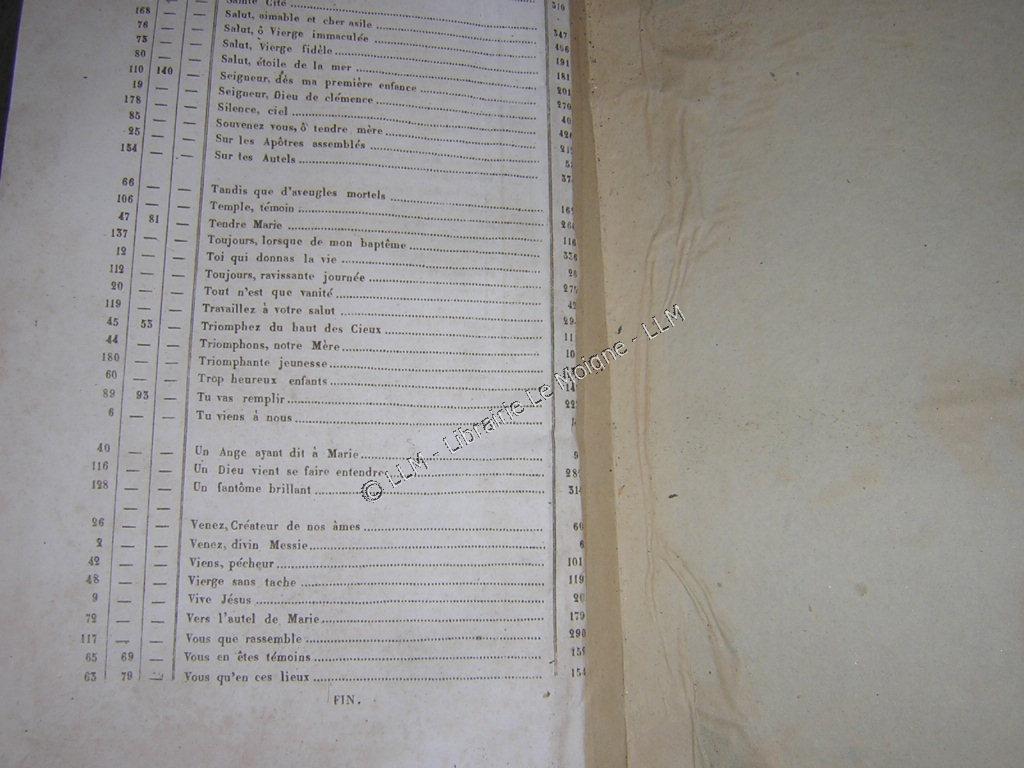 Sainte Cité 347
168 — — Salut, aimable et cher asile
76 — — Salut, ô Vierge immaculée 191
73 — — Salut, Vierge fidèle 181
80 — — Salut, étoile de la mer 201
110 140 — Seigneur, dès ma première enfance 270
19 — — Seigneur, Dieu de clémence 40
178 — — Silence, ciel
85 — — Souvenez vous, ô tendre mère
25 — — Sur les Apôtres assemblés
154 — — Sur tes Autels
66 — — Tandis que d'aveugles mortels
106 — — Temple, témoin
47 81 — Tendre Marie 116
137 — — Toujours, lorsque de mon baptême 336
12 — — Toi qui donnas la vie
112 — — Toujours, ravissante journée
20 — — Tout n'est que vanité
119 — — Travaillez à votre salut
45 53 — Triomphez du haut des Cieux
44 — — Triomphons, notre Mère
180 — — Triomphante jeunesse
60 — — Trop heureux enfants
89 93 — Tu vas remplir
6 — — Tu viens à nous
40 — — Un Ange ayant dit à Marie
116 — — Un Dieu vient se faire entendre
128 — — Un fantôme brillant
— —
26 — — Venez, Créateur de nos âmes
2 — — Venez, divin Messie 6
42 — — Viens, pécheur 101
48 — — Vierge sans tache 119
9 — — Vive Jésus 20
72 — — Vers l'autel de Marie 179
117 — — Vous que rassemble 290
65 69 — Vous en êtes témoins
63 79 — Vous qu'en ces lieux 154
FIN.
© LLM - Librairie Le Moigne - LLM